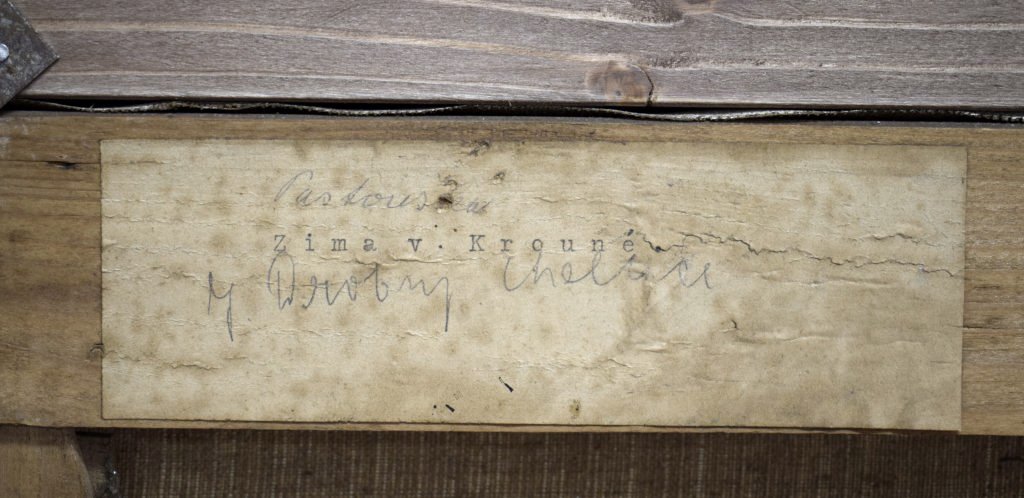 Pastouška
Zima v. Krouné.
J. Drobny Chelčice